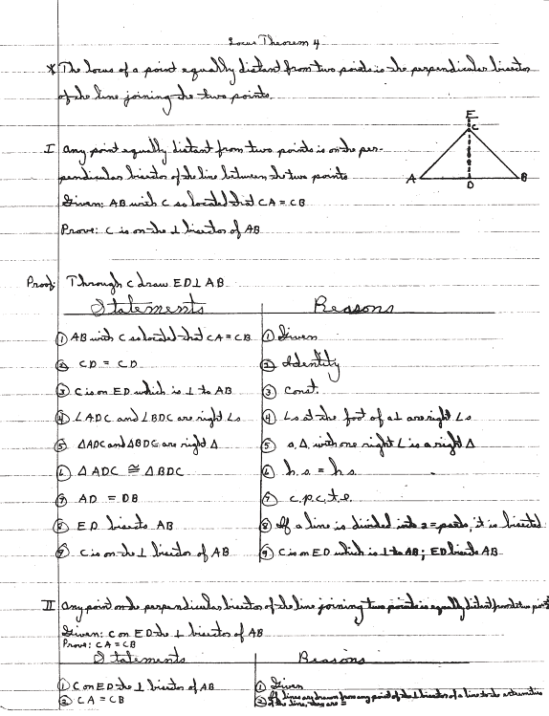 Locus Theorem 4
* The locus of a point equally distant from two points is the perpendicular bisector
of the line joining the two points.
E
C
A
D
B
I Any point equally distant from two points is on the per-
pendicular bisector of the line between the two points
Given: AB with C so located that CA = CB
Prove: C is on the ⊥ bisector of AB
Proof: Through C draw ED ⊥ AB
Statements Reasons
① AB with C so located that CA = CB ① Given
② CD = CD ② Identity
③ C is on ED which is ⊥ to AB ③ Const.
④ ∠ADC and ∠BDC are right ∠s ④ ∠s at the foot of a ⊥ are right ∠s
⑤ △ADC and △BDC are right △ ⑤ a △ with one right ∠ is a right △
⑥ △ADC ≅ △BDC ⑥ h.s. = h.s.
⑦ AD = DB ⑦ c.p.c.t.e.
⑧ ED bisects AB ⑧ If a line is divided into 2 = parts, it is bisected
⑨ C is on the ⊥ bisector of AB ⑨ C is on ED which is ⊥ to AB; ED bisects AB
II Any point on the perpendicular bisector of the line joining two points is equally distant from the two
Given: C on ED the ⊥ bisector of AB
Prove: CA = CB
Statements Reasons
① C on ED the ⊥ bisector of AB ① Given
② CA = CB ② If lines are drawn from any point of the ⊥ bisector of a line to the extremities
of the line, they are =